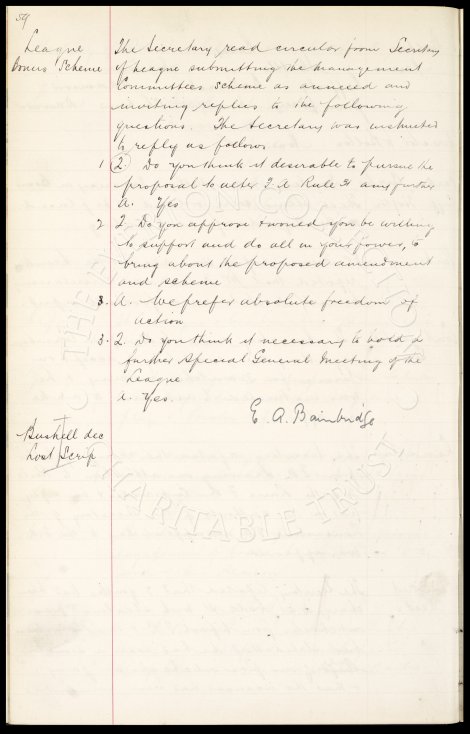 59
League
Bonus Scheme
The Secretary read circular from Secretary
of League submitting the management
Committees scheme as annexed and
inviting replies to the following
questions. The Secretary was instructed
to reply as follows
1 Q. Do you think it desirable to pursue the
proposal to alter F A Rule 31 any further
A. Yes
2 Q. Do you approve & would you be willing
to support and do all in your power, to
bring about the proposed amendment
and scheme
3. A. We prefer absolute freedom of
action
3. Q. Do you think it necessary to hold a
further Special General Meeting of the
League
a. Yes.
E. A. Bainbridge
Bushell dec
Lost Scrip
THE
CHARITABLE TRUST